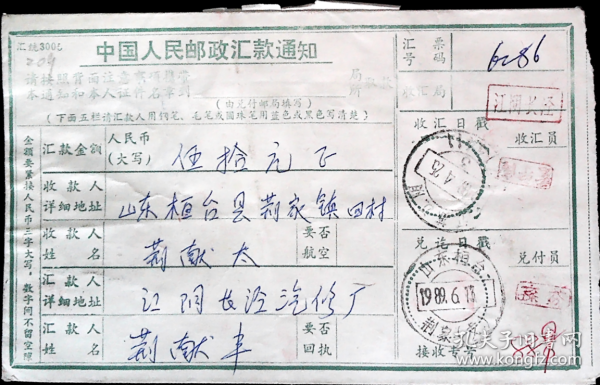 汇统300乙
中国人民邮政汇款通知
汇票号码 6286
请按照背面注意事项
本通知和本人证件
收汇局 江阴长泾
(由兑付邮局填写)
(下面五栏请汇款人用钢笔、毛笔或圆珠笔用蓝色或黑色写清楚)
收汇日戳
收汇员
汇款金额 人民币(大写) 伍拾元正
收款人详细地址 山东桓台县荆家镇田村
收款人姓名 荆献太
要否航空
兑讫日戳
兑付员
山东桓台
1989.6.13
荆家
汇款人详细地址 江阴长泾汽修厂
汇款人姓名 荆献丰
要否回执
接收
金额要紧接人民币三字大写,数字间不留空隙
孔夫子旧书网